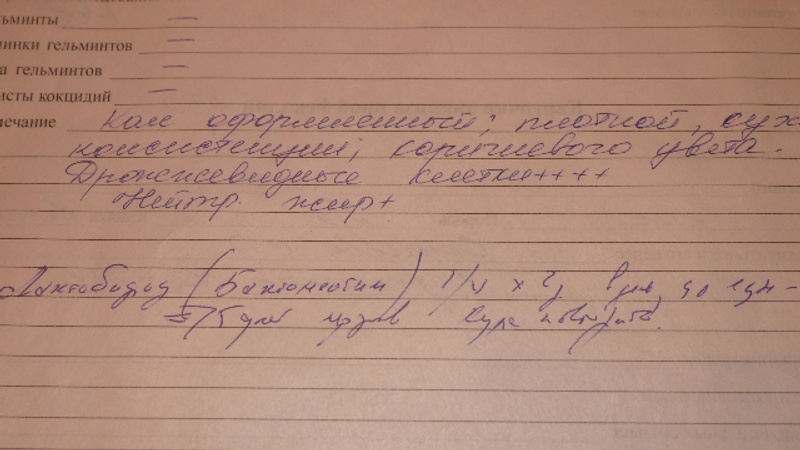 льминты —
инки гельминтов —
а гельминтов —
исты кокцидий —
мечание Кал оформленный; плотной, сух
консистенции; коричневого цвета.
Дрожжевидные клетки++++
Нейтр. жир+
Лактобифид (Бактонеотим) 1/4 х 2 р. в день, до еды -
курс повторить.